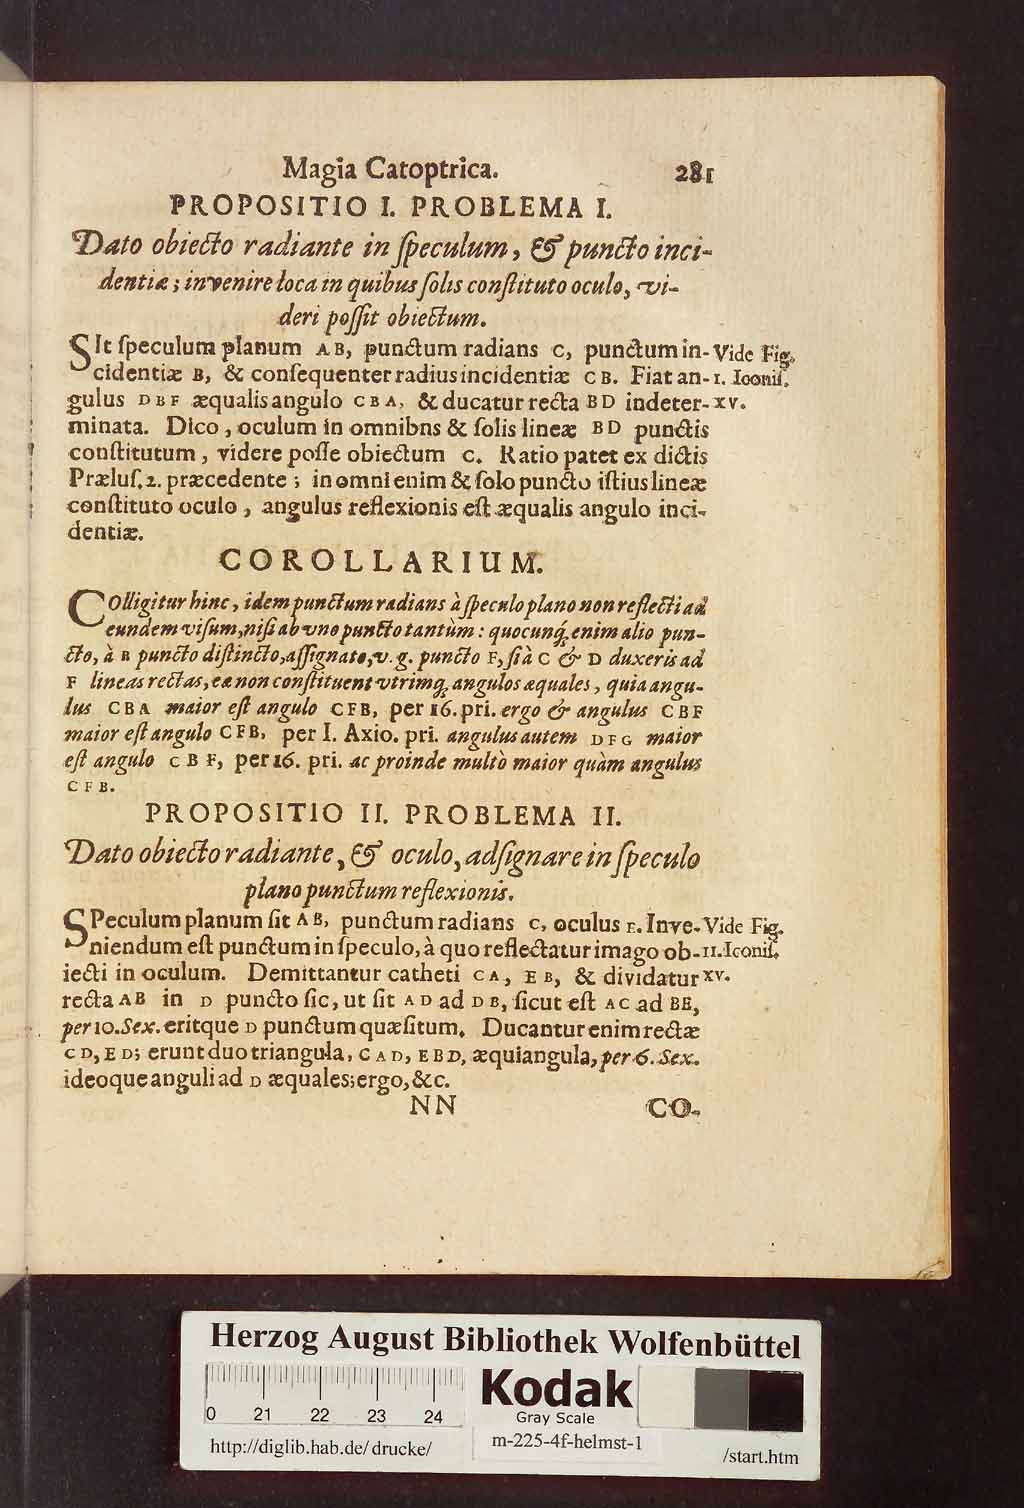 Magia Catoptrica. 281
PROPOSITIO I. PROBLEMA I.
Dato obiecto radiante in ſpeculum, & puncto inci-
dentiæ; invenire loca in quibus ſolis conſtituto oculo, vi-
deri poſſit obiectum.
SIt ſpeculum planum AB, punctum radians C, punctum in- Vide Fig.
cidentiæ B, & conſequenter radius incidentiæ CB. Fiat an- 1. Iconiſ.
gulus DBF æqualis angulo CBA, & ducatur recta BD indeter- XV.
minata. Dico, oculum in omnibns & ſolis lineæ BD punctis
conſtitutum, videre poſſe obiectum C. Ratio patet ex dictis
Præluſ. 2. præcedente; in omni enim & ſolo puncto iſtius lineæ
conſtituto oculo, angulus reflexionis eſt æqualis angulo inci-
dentiæ.
COROLLARIUM.
COlligitur hinc, idem punctum radians à ſpeculo plano non reflecti ad
eundem viſum, niſi ab vno puncto tantùm: quocunq; enim alio pun-
cto, à B puncto diſtincto, aſſignato, v. g. puncto F, ſi à C & D duxeris ad
F lineas rectas, eæ non conſtituent vtrimq; angulos æquales, quia angu-
lus CBA maior eſt angulo CFB, per 16. pri. ergo & angulus CBF
maior eſt angulo CFB, per I. Axio. pri. angulus autem DFG maior
eſt angulo CBF, per 16. pri. ac proinde multò maior quàm angulus
CFB.
PROPOSITIO II. PROBLEMA II.
Dato obiecto radiante, & oculo, adſignare in ſpeculo
plano punctum reflexionis.
SPeculum planum ſit AB, punctum radians C, oculus E. Inve- Vide Fig.
niendum eſt punctum in ſpeculo, à quo reflectatur imago ob- 11. Iconiſ.
iecti in oculum. Demittantur catheti CA, EB, & dividatur XV.
recta AB in D puncto ſic, ut ſit AD ad DB, ſicut eſt AC ad BE,
per 10. Sex. eritque D punctum quæſitum. Ducantur enim rectæ
CD, ED; erunt duo triangula, CAD, EBD, æquiangula, per 6. Sex.
ideoque anguli ad D æquales; ergo, &c.
NN CO-
Herzog August Bibliothek Wolfenbüttel
0 21 22 23 24
Kodak
Gray Scale
http://diglib.hab.de/drucke/ m-225-4f-helmst-1 /start.htm